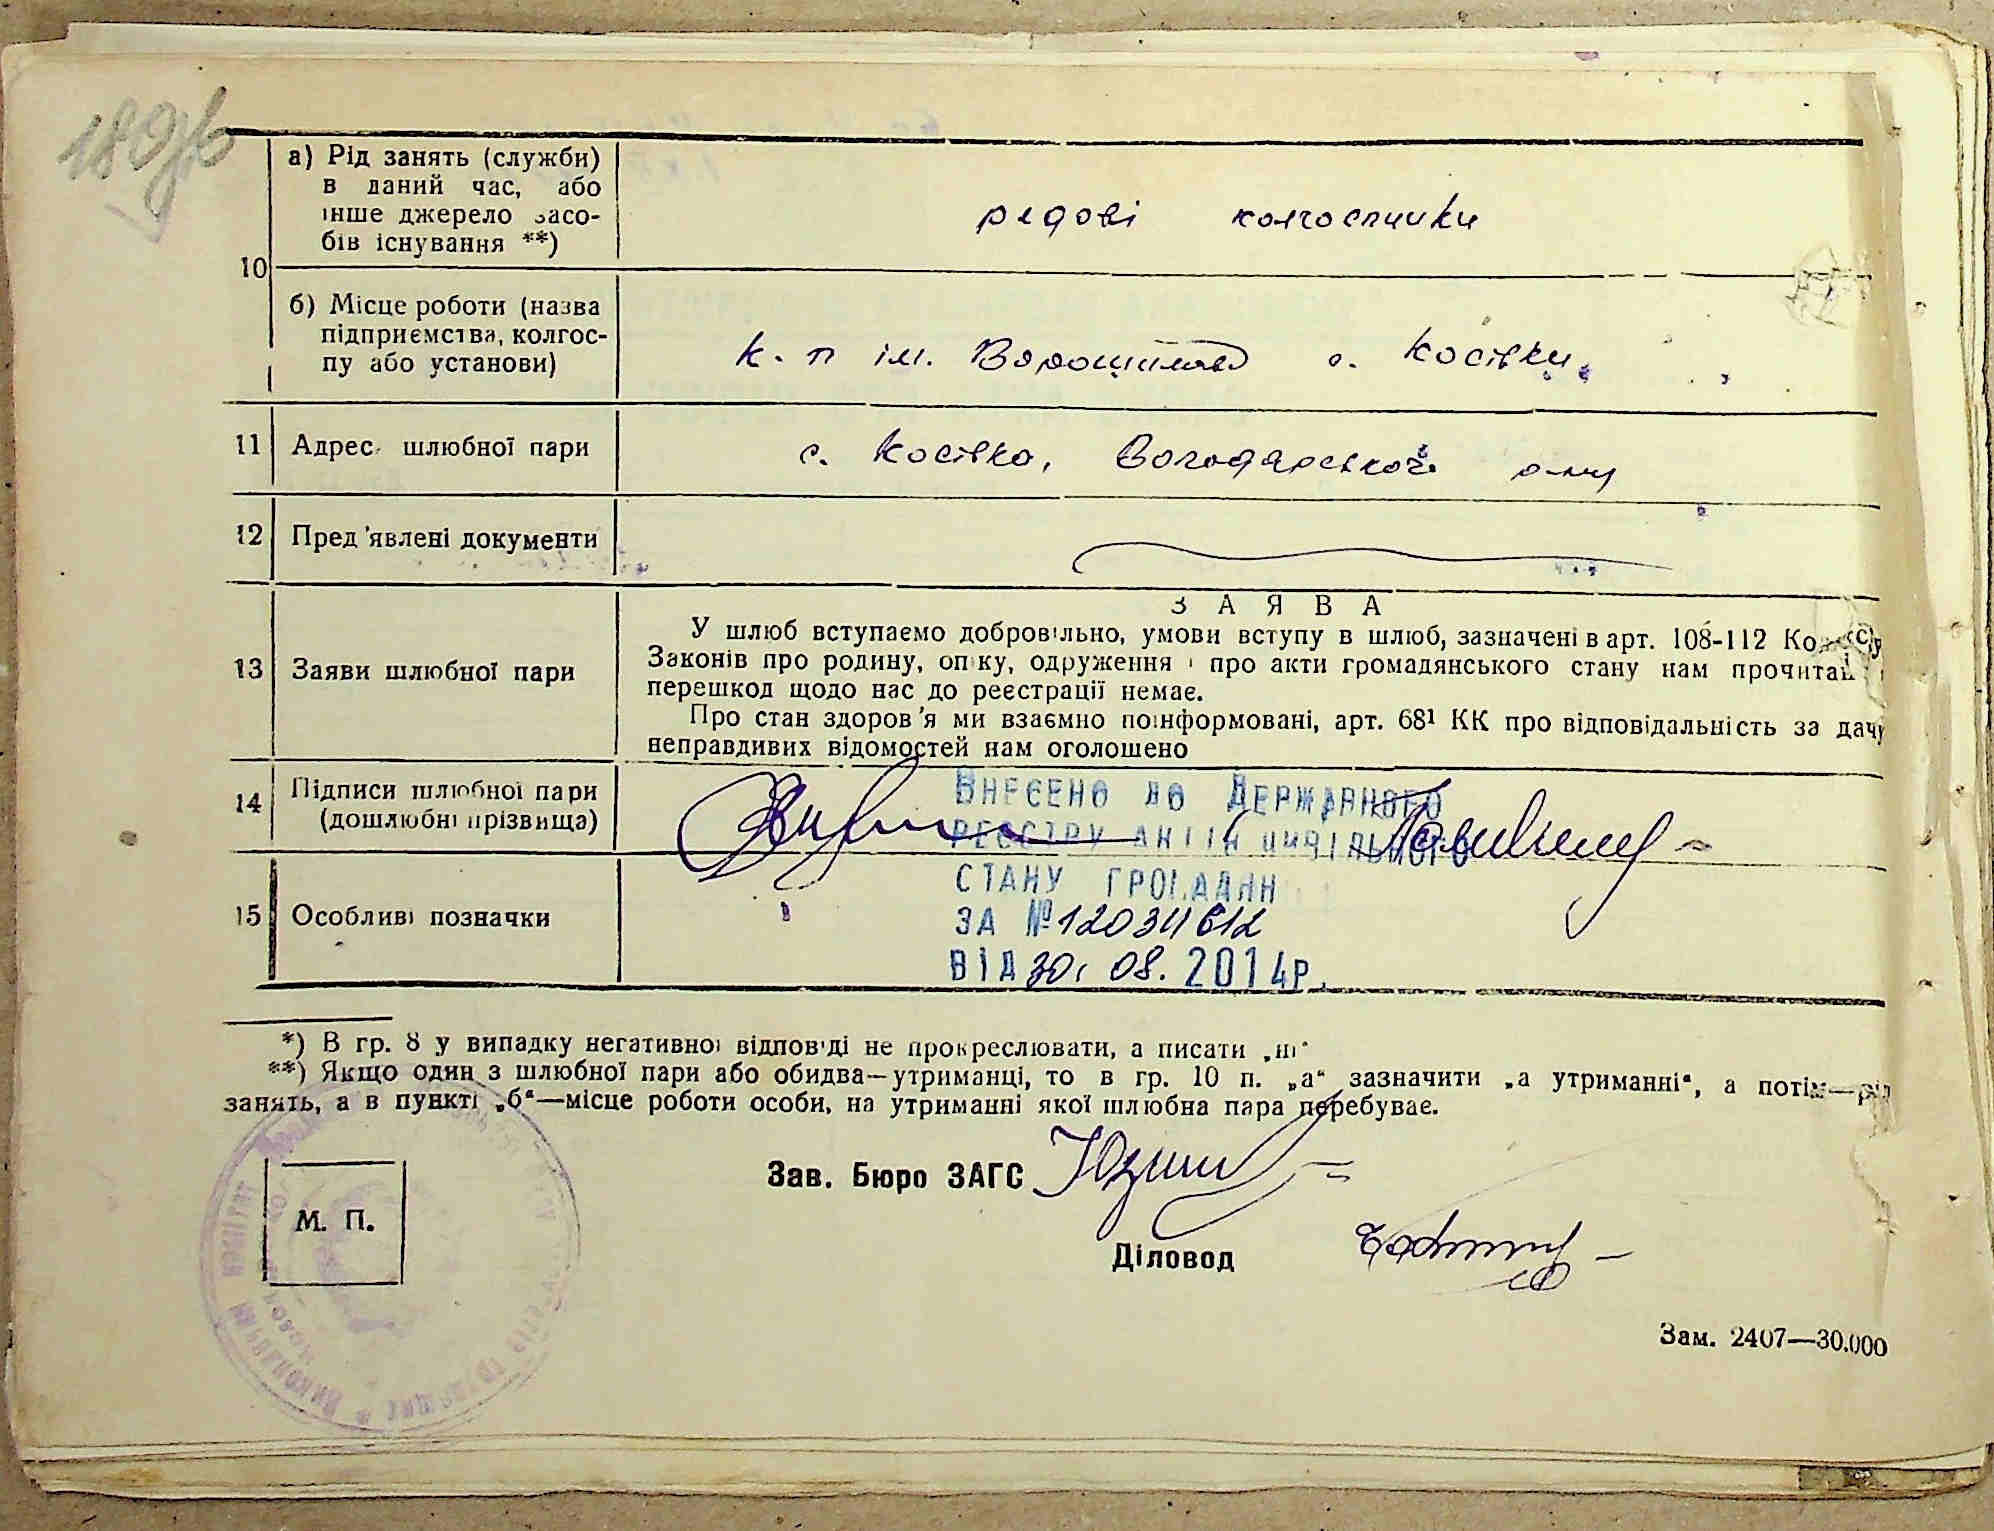 180зв
10
а) Рід занять (служби)
в даний час, або
інше джерело засо-
бів існування **)
редові колгоспники
б) Місце роботи (назва
підприємства, колгос-
пу або установи)
к-п ім. Ворошилова с. Косівки
11 Адрес шлюбної пари
с. Косівка, Володарської р-ну
12 Пред'явлені документи
13 Заяви шлюбної пари
ЗАЯВА
У шлюб вступаємо добровільно, умови вступу в шлюб, зазначені в арт. 108-112
Законів про родину, опіку, одруження і про акти громадянського стану нам прочитані
перешкод щодо нас до реєстрації немає.
Про стан здоров'я ми взаємно поінформовані, арт. 68¹ КК про відповідальність за дачу
неправдивих відомостей нам оголошено
14 Підписи шлюбної пари
(дошлюбні прізвища)
15 Особливі позначки
ВНЕСЕНО ДО ДЕРЖАВНОГО
РЕЄСТРУ АКТІВ ЦИВІЛЬНОГО
СТАНУ ГРОМАДЯН
ЗА №12034612
ВІД 30. 08. 2014р.
*) В гр. 8 у випадку негативної відповіді не прокреслювати, а писати „ні"
**) Якщо один з шлюбної пари або обидва—утриманці, то в гр. 10 п. „а" зазначити „а утриманні", а потім—рід
занять, а в пункті „б"—місце роботи особи, на утриманні якої шлюбна пара перебуває.
Зав. Бюро ЗАГС
М. П.
Діловод
Зам. 2407—30.000